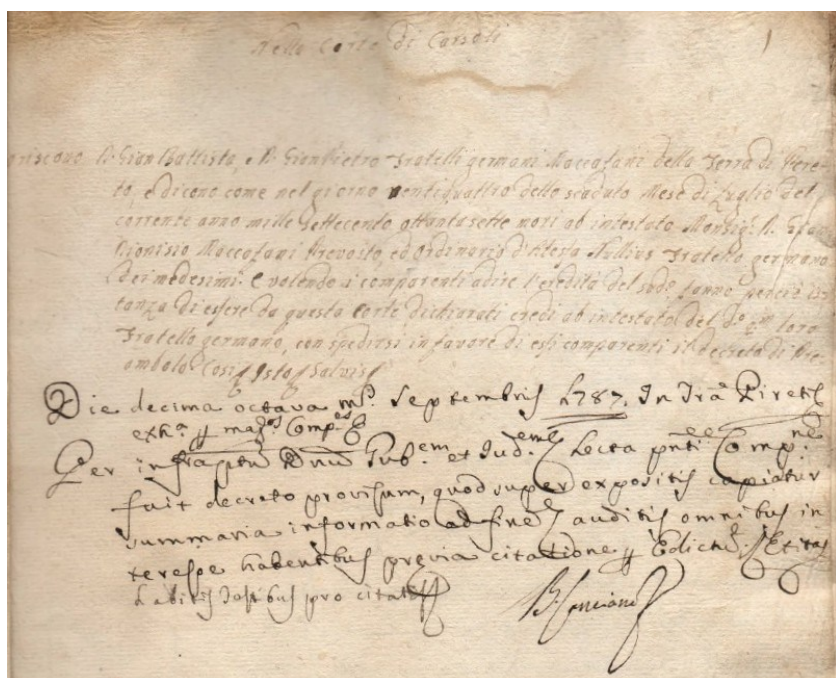 Nella Corte di Carsoli
1
riscono D. Gian Battista, e D. Gian Pietro Fratelli germani Maccafani della Terra di Pere-
to, e dicono come nel giorno ventiquattro dello scaduto Mese di Luglio del
corrente anno mille settecento ottantasette morì ab intestato Monsig.r D. Gian
Dionisio Maccafani Prevosto, ed Ordinario d'Atessa Nullius Fratello germano
dei medesimi. E volendo i comparenti adire l'eredità del sud.o fanno perciò is-
tanza di essere da questa Corte dichiarati eredi ab intestato del d.o loro
Fratello germano, con spedirsi in favore di essi comparenti il decreto di Pre-
ambolo Così
Die decima octava m.s Septembris 1787. In Tra Pireti
exh.a mag.os Comp.es
Per infraptum Dnum Gub.em et Jud.em Lecta pnti Comp.ne
fuit decreto provisum, quod super expositis capiatur
summaria informatio ad finem auditis omnibus in
teresse habentibus previa citatione Edictum
habitis pro citatis